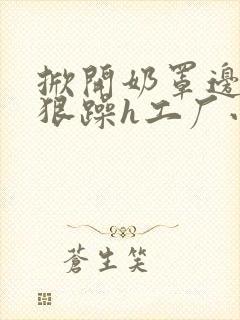 掀開奶罩邊
狠躁h工厂
蒼生笑